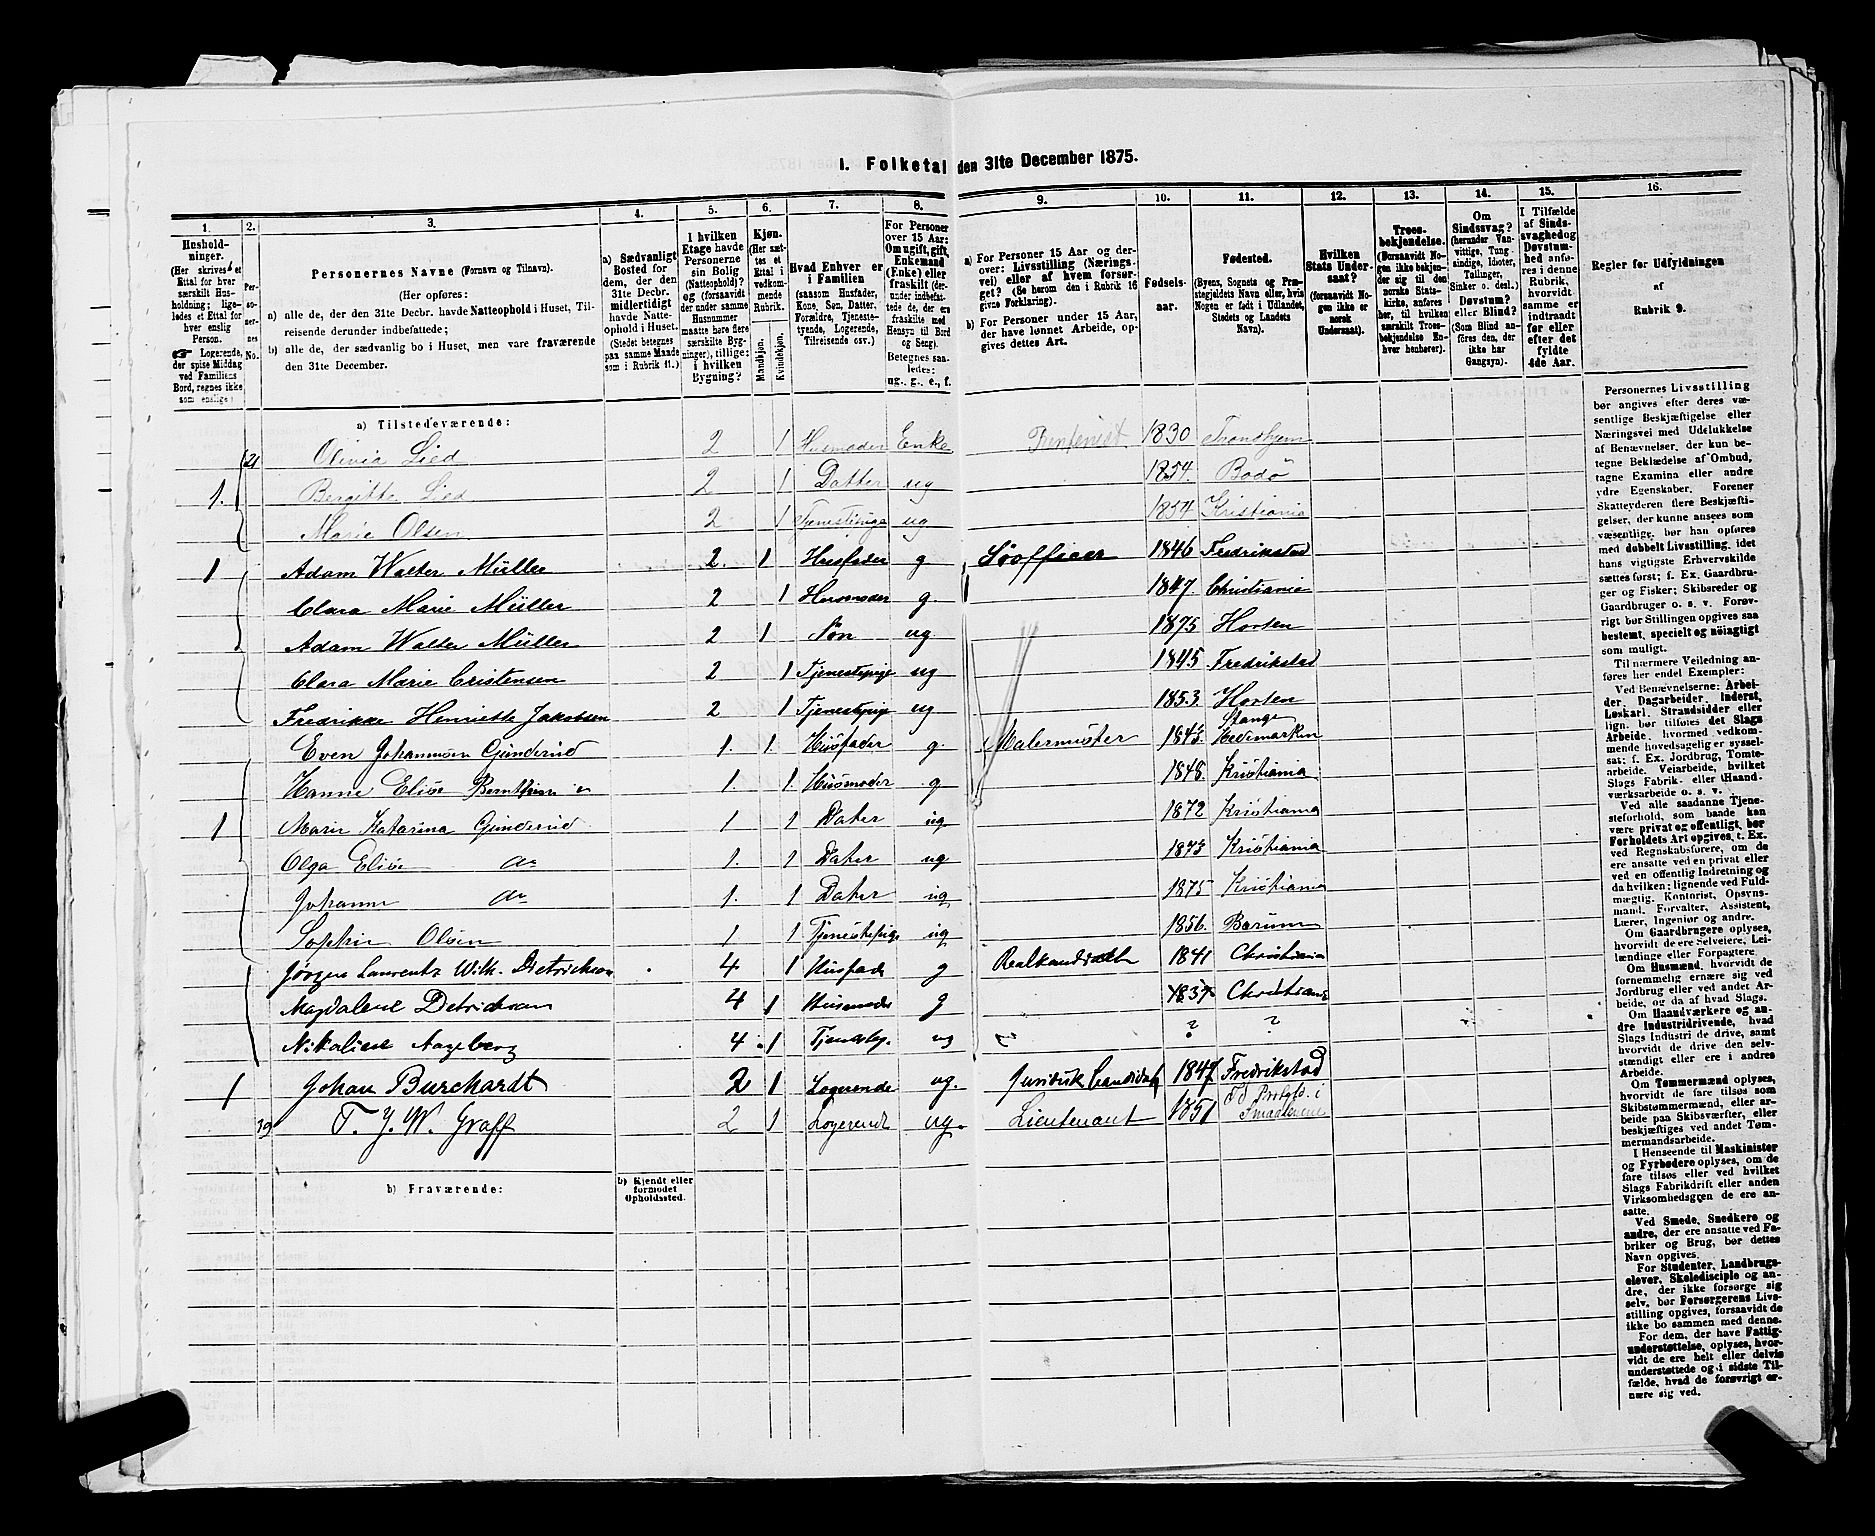 1. Folketal den 31te December 1875.
1. 2. 3. 4. 5. 6. 7. 8. 9. 10. 11. 12. 13. 14. 15. 16.
Husholdninger.
(Her skrives et Ettal for hver særskilt Husholdning; ligeledes et Ettal for hver enslig Person.
☞ Logerende, der spise Middag ved Familiens Bord, regnes ikke som enslige)
Personernes No.
Personernes Navne (Fornavn og Tilnavn).
(Her opføres:
a) alle de, der den 31te Decbr. havde Natteophold i Huset, Tilreisende derunder indbefattede;
b) alle de, der sædvanlig bo i Huset, men vare fraværende den 31te December.
a) Sædvanligt Bosted for dem, der den 31te Decbr. midlertidigt havde Natteophold i Huset. (Stedet betegnes paa samme Maade som i Rubrik 11.)
I hvilken Etage havde Personerne sin Bolig (Natteophold)? og (forsaavidt der under samme Husnummer maatte høre flere særskilte Bygninger), tillige: i hvilken Bygning?
Kjøn. (Her sættes et Ettal i vedkommende Rubrik.
Mandkjøn. Kvindekjøn.
Hvad Enhver er i Familien
(saasom Husfader, Kone, Søn, Datter, Forældre, Tjenestetyende, Logerende, Tilreisende osv.)
For Personer over 15 Aar: Om ugift, gift, Enkemand (Enke) eller fraskilt (derunder indbefattede de, som ere fraskilte med Hensyn til Bord og Seng).
Betegnes saaledes: ug., g., e., f.
a) For Personer 15 Aar og derover: Livsstilling (Næringsvei) eller af hvem forsørget? (Se herom den i Rubrik 16 gives Forklaring).
b) For Personer under 15 Aar, der have lønnet Arbeide, opgives dettes Art.
Fødselsaar.
Fødested.
(Byens, Sognets og Præstegjeldets Navn eller, hvis Nogen er født i Udlandet, Stedets og Landets Navn).
Hvilken Stats Undersaat?
(forsaavidt Nogen ikke er norsk Undersaat).
Troesbekjendelse. (Forsaavidt Nogen ikke bekjender sig til den norske Statskirke, anføres her, til hvilken særskilt Troesbekjendelse Enhver henhører).
Om Sindssvag? (herunder Vanvittige, Tungsindige, Idioter, Tullinger, Sinker o. desl.). Døvstum? eller Blind? (Som Blind anføres den, der ikke har Gangsyn).
I Tilfælde af Sindssvaghed og Døvstumhed anføres i denne Rubrik, hvorvidt samme er indtraadt før eller efter det fyldte 4de Aar.
Regler for Udfyldningen af Rubrik 9.
a) Tilstedeværende:
21 Olivia Lied 2 1 Husmoder Enke Rentenist 1830 Trondhjem
1. Bergitte Lied 2 1 Datter ug 1854. Bodö
Marie Olsen 2 1 Tjenestpige ug 1854 Kristiania
1 Adam Walter Müller 2. 1 Husfader g Söofficer 1846 Fredrikstad
Clara Marie Müller 2 1 Husmoder g. 1847. Christiania
Adam Walter Müller 2 1 Sön ug 1875 Horten
Clara Marie Cristensen 2 1 Tjenestepige ug 1845 Fredrikstad
Fredrikke Henriette Jakobsen 2 1 Tjenestepige ug 1853. Horten
Even Johannesen Gunderud 1. 1. Husfader g. Malermester 1843. Stange Hedemarken
Hanne Elise 1. 1. Husmoder g 1848. Kristiania
1 Marie Katarina Gunderud 1 1 Dater ug 1872 Kristiania
Olga Elise do 1. 1 Dater ug 1873 Kristiania
Johanne do 1. 1 Dater ug 1875 Kristiania
Sophie Olsen 1 1 Tjenestepige ug 1856. Barum
Jörgen Laurentz Wilh. Dietrichson 4 1 Husfade g Realkandidat 1841 Christiania
Magdalene Detrichson 4 1 Husmoder g 1837 Christiania
Nikoline Aageberg 4. 1 Tjenestep. ug ? ?
1 Johan Burchardt 2 1 Logerende ug. Juridisk Candidat 1847 Fredrikstad
39 T. J. W. Graff 2 1 Logerende ug. Lieutenant 1851 Id Prstgd. i Smaalenene
b) Fraværende:
b) Kjendt eller formodet Opholdssted.
Personernes Livsstilling
bør angives efter deres væsentlige Beskjæftigelse eller
Næringsvei med Udelukkelse
af Benævnelser, der kun betegne Beklædelse af Ombud,
tagne Examina eller andre
ydre Egenskaber. Forener
Skatteyderen flere Beskjæftigelser, der kunne ansees som
væsentlige, bør han opføres
med dobbelt Livsstilling, idet
hans vigtigste Erhvervskilde
sættes først; f. Ex. Gaardbruger og Fisker; Skibsreder og
Gaardbruger o. s. v. Forøvrigt bør Stillingen opgives saa
bestemt, specielt og nöiagtigt
som muligt.
Til nærmere Veiledning anføres her endel Exempler:
Ved Benævnelserne: Arbeider, Dagarbeider, Inderst,
Løskarl, Strandsidder eller
lign. bør tilføres det Slags
Arbeide, hvormed vedkommende hovedsagelig er sysselsat; f. Ex. Jordbrug, Tomtearbeide, Veiarbeide, hvilket
Slags Fabrik- eller Haandværksarbeide o. s. v.
Ved alle saadanne Tjenesteforhold, som baade kan
være privat og offentligt, bør
Forholdets Art opgives, t. Ex.
ved Regnskabsførere, om de
ere ansatte ved en privat eller
ved en offentlig Indretning og
da hvilken; lignende ved Fuldmægtig, Kontorist, Opsynsmand, Forvalter, Assistent,
Lærer, Ingeniør og andre.
Om Gaardbrugere oplyses,
hvorvidt de ere Selveiere, Leilændinge eller Forpagtere.
Om Husmænd, hvorvidt de
fornemmelig ernære sig ved
Jordbrug eller ved andet Arbeide, og da af hvad Slags.
Om Haandværkere og andre Industridrivende, hvad
Slags Industri de drive, samt
hvorvidt de drive den selvstændigt eller ere i andres
Arbeide.
Om Tømmermænd oplyses,
hvorvidt de fare tilsøs som
Skibstømmermænd, eller arbeide paa Skibsværfter, eller
beskjæftiges ved andet Tømmermandsarbeide.
I Henseende til Maskinister
og Fyrbødere oplyses, om de
fare tilsøs eller ved hvilket
Slags Fabrikdrift eller anden
Virksomhedsgren de ere ansatte.
Ved Smede, Snedkere og
andre, der ere ansatte ved Fabriker og Brug, bør dettes
Navn opgives.
For Studenter, Landbrugselever, Skoledisciple og andre, der ikke forsørge sig
selv, bør Forsørgerens Livsstilling opgives, forsaavidt de
ikke bo sammen med denne.
For dem, der have Fattigunderstøttelse, oplyses, hvorvidt de ere helt eller delvis
understøttede og i sidste Tilfælde, hvad de forøvrigt ernære sig ved.